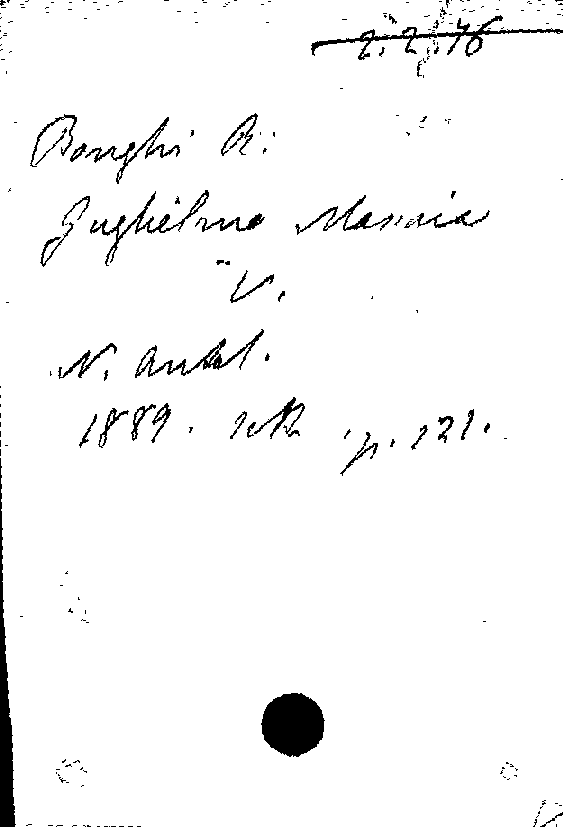 2.2.76
Bonghi R:
Guglielmo Massaia
V.
N. Antol.
1889. sett. p. 121.